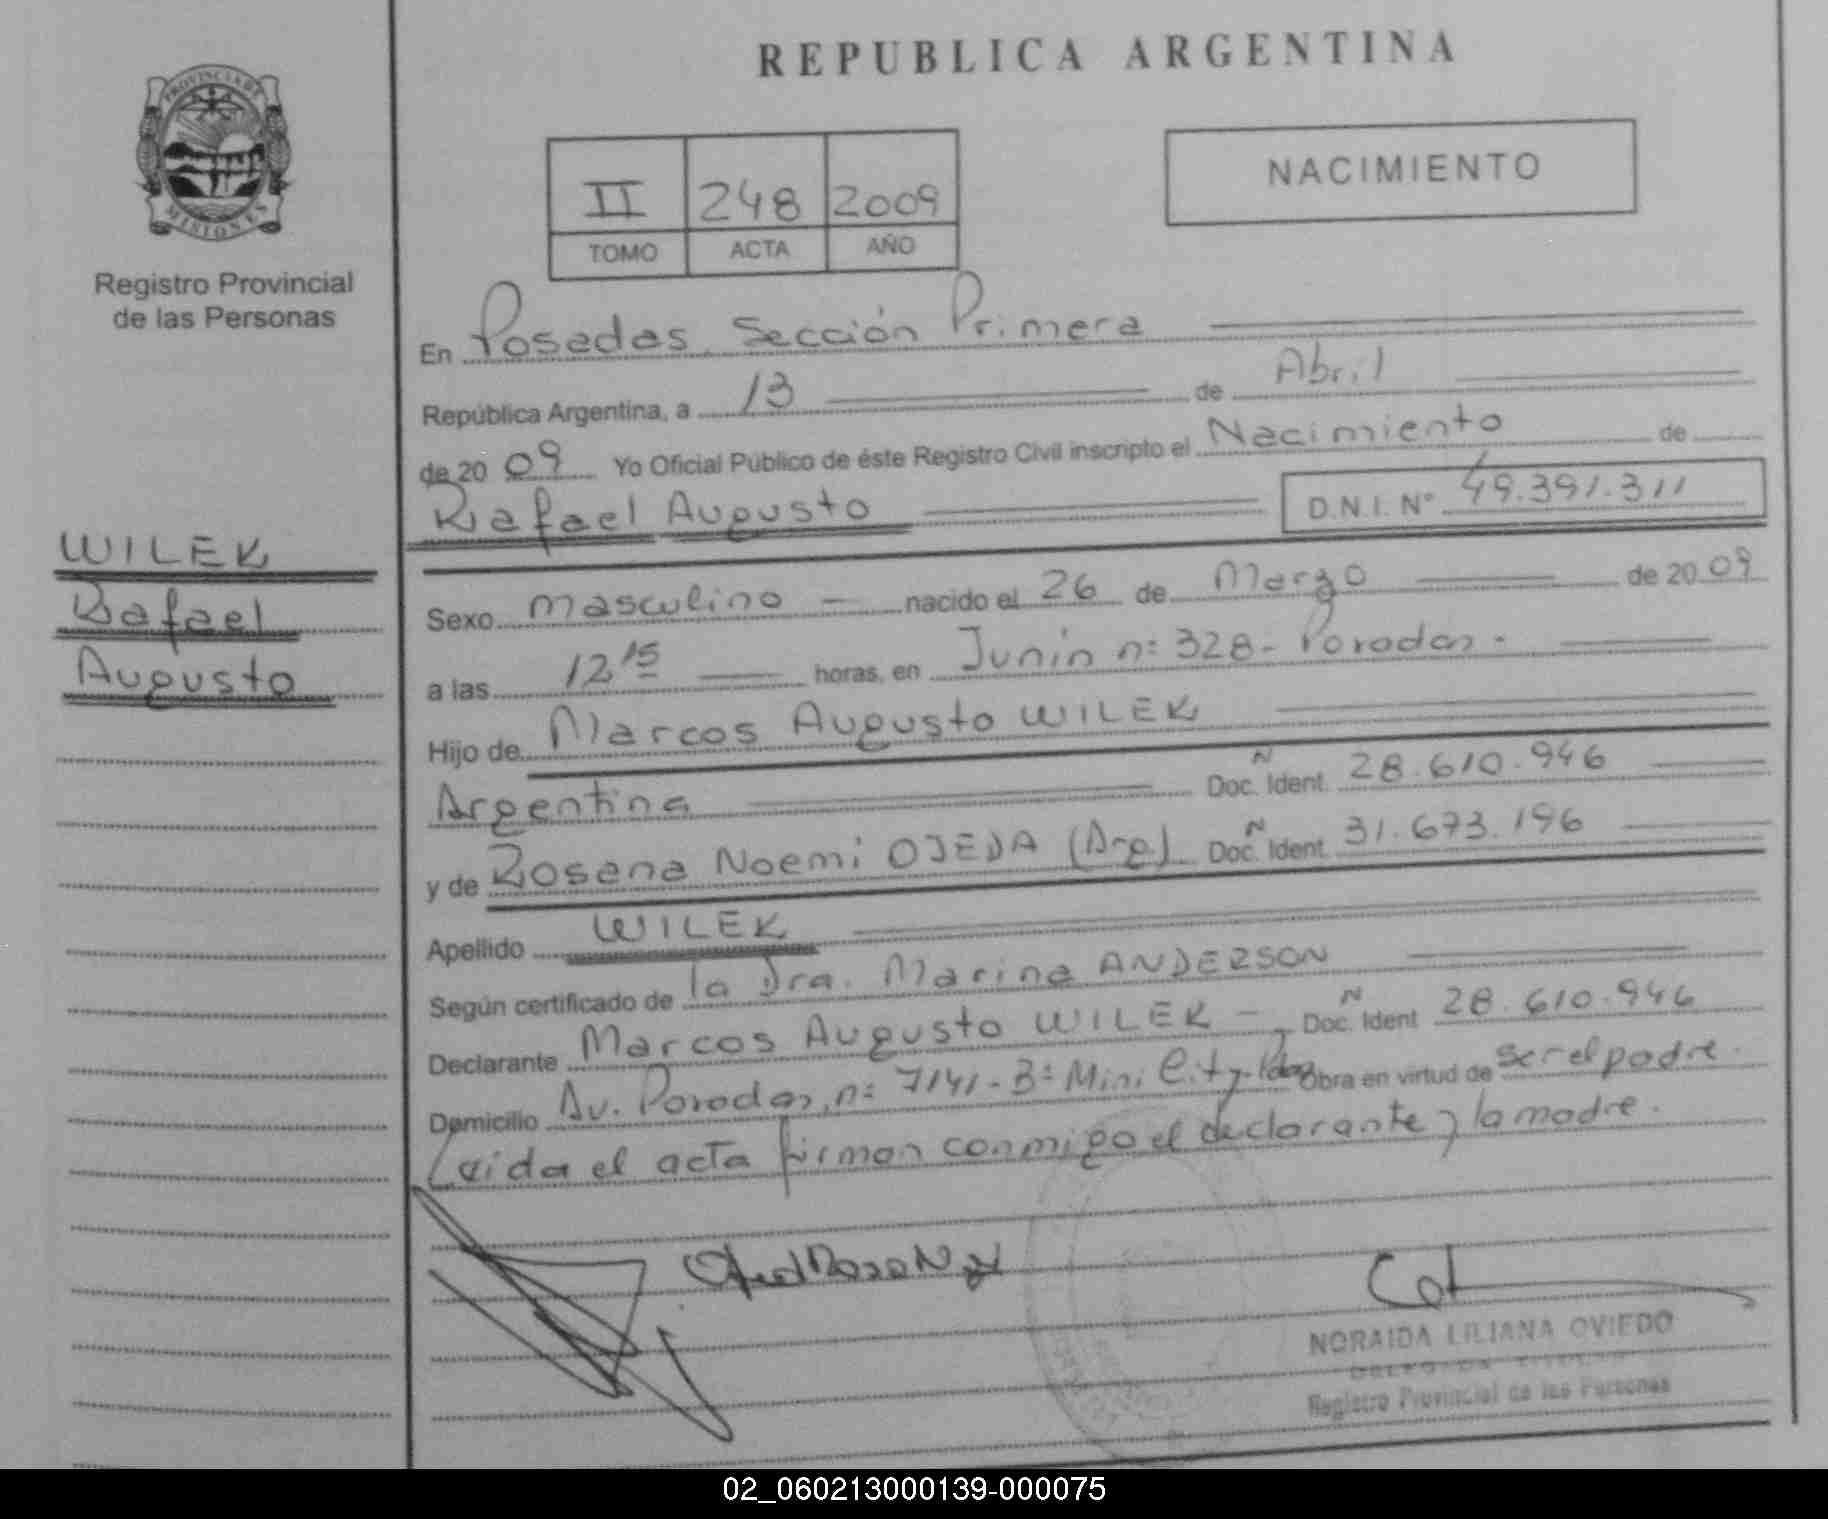 REPUBLICA ARGENTINA
PROVINCIA DE
MISIONES
Registro Provincial
de las Personas
II 248 2009
TOMO ACTA AÑO
NACIMIENTO
En Posadas, Sección Primera
República Argentina, a 13 de Abril
de 20 09 Yo Oficial Público de éste Registro Civil inscripto el Nacimiento de
Rafael Augusto D.N.I. Nº 49.391.311
WILEK
Rafael
Augusto
Sexo masculino nacido el 26 de Marzo de 20 09
a las 12 15 horas, en Junín nº 328 - Posadas -
Hijo de Marcos Augusto WILEK
Argentina N Doc. Ident. 28.610.946
y de Rosana Noemi OJEDA (Arg) N Doc. Ident. 31.673.196
Apellido WILEK
Según certificado de la Dra. Marina ANDERSON
Declarante Marcos Augusto WILEK - N Doc. Ident 28.610.946
Domicilio Av. Posadas, nº 7141 - Bº Mini City - Pdas Obra en virtud de ser el padre.
Leida el acta firman conmigo el declarante y la madre.
NORAIDA LILIANA OVIEDO
Registro Provincial de las Personas
02_060213000139-000075